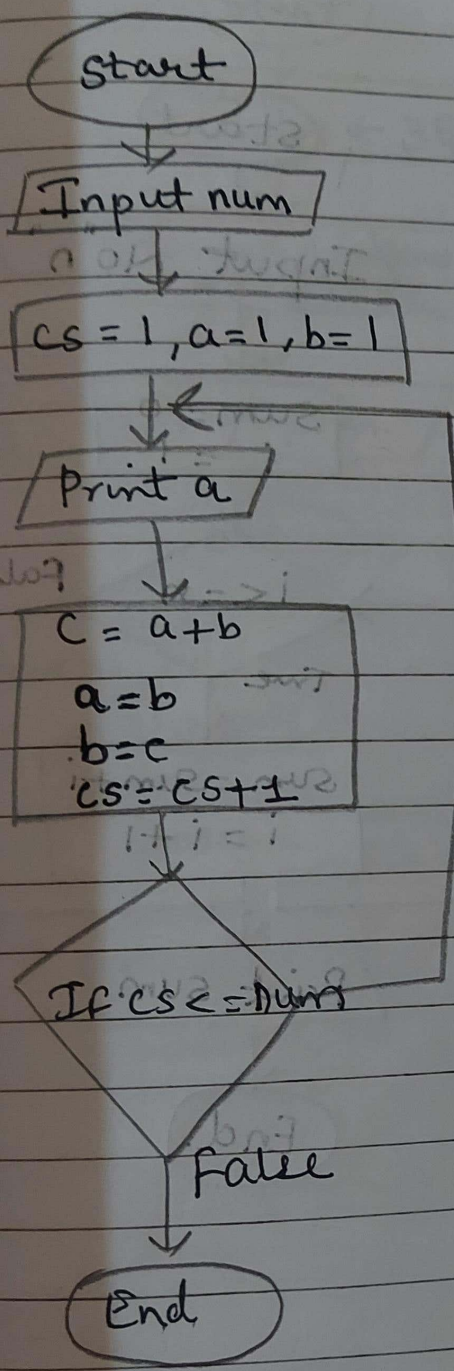 Start
Input num
cs = 1, a=1, b=1
Print a
C = a+b
a=b
b=c
cs = cs+1
If cs <= num
False
End